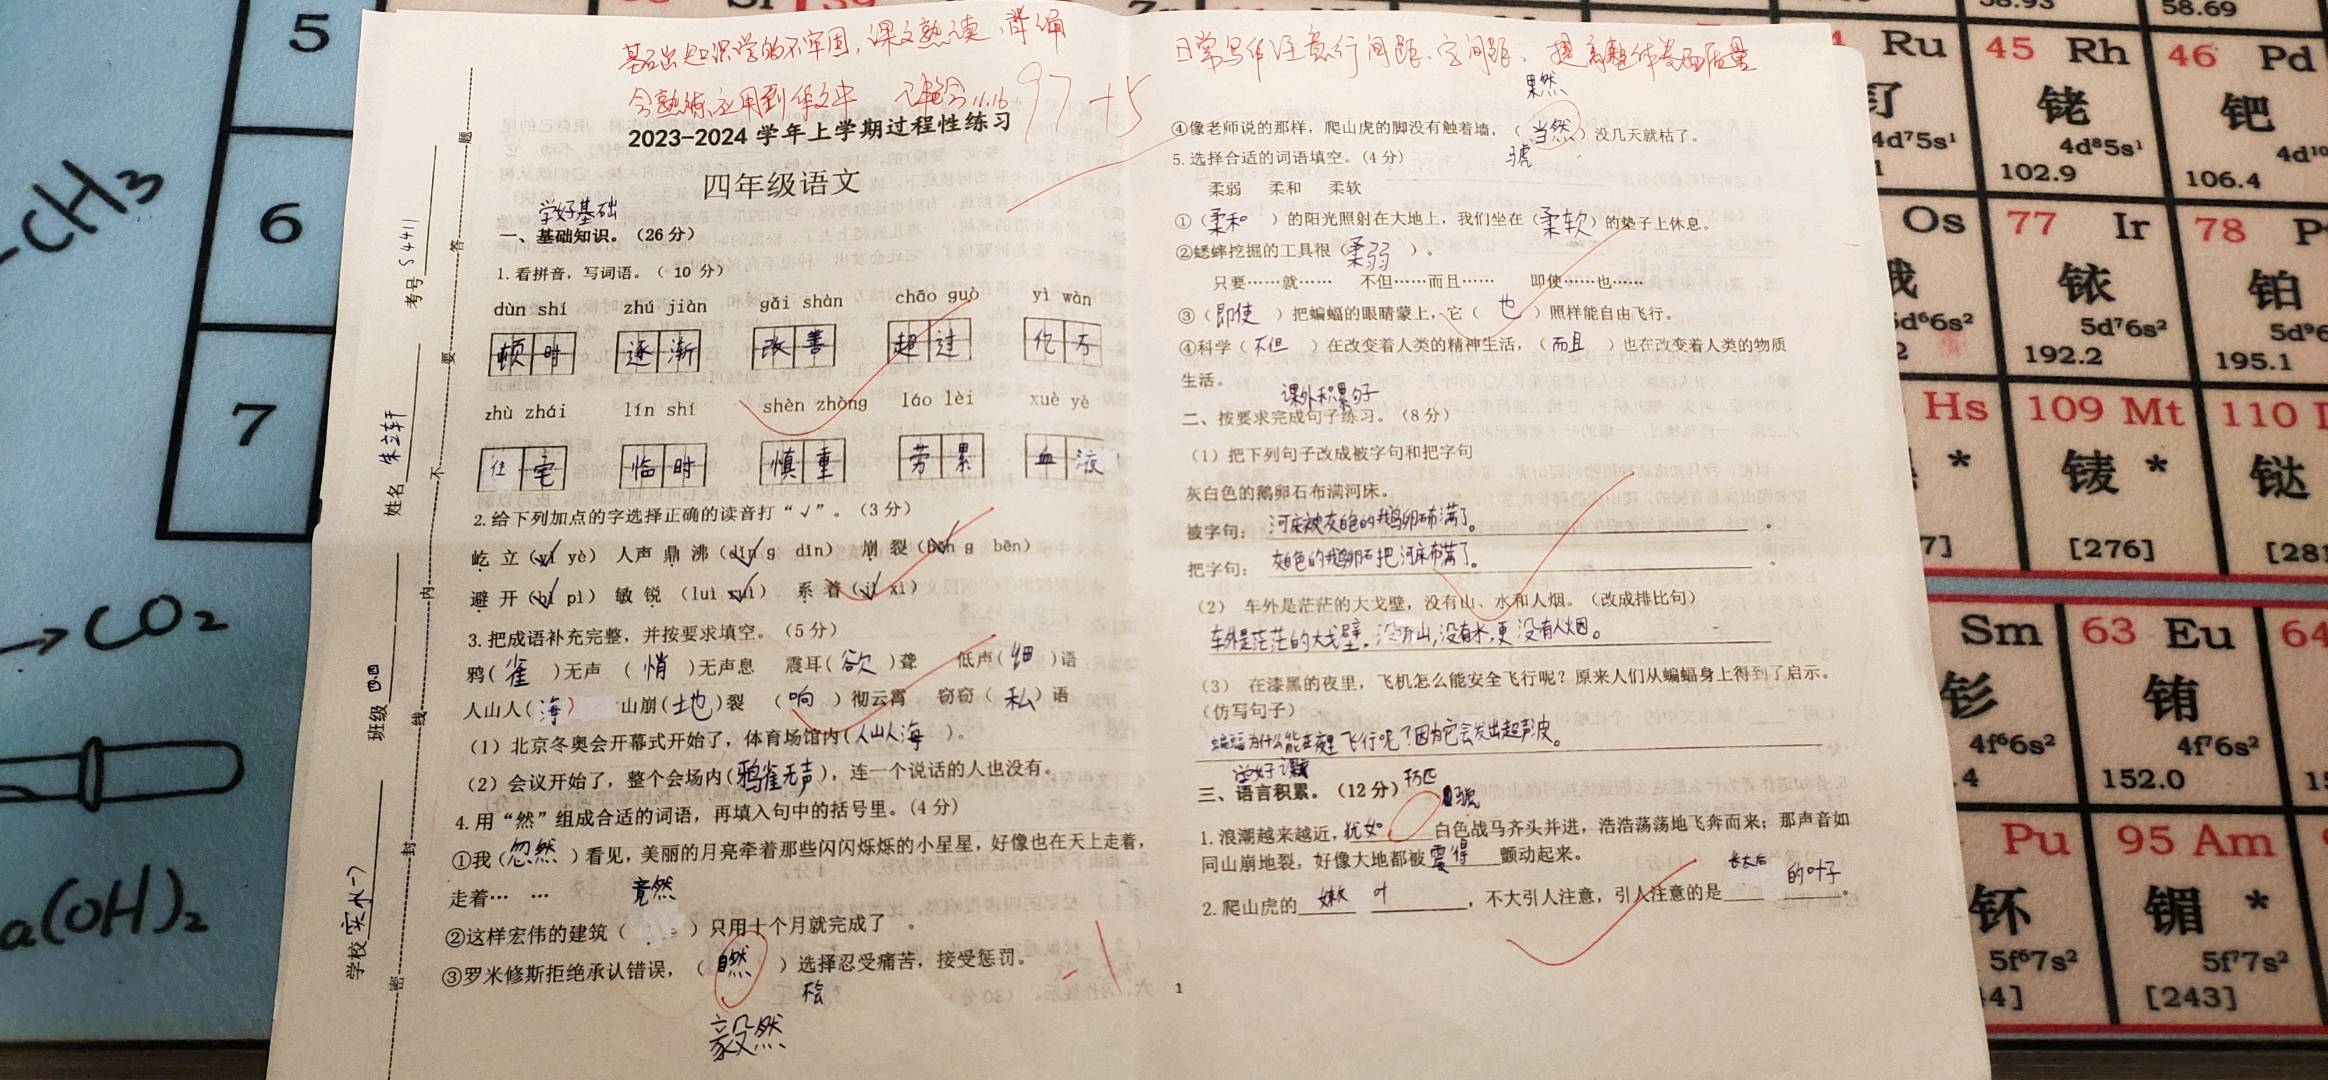 基础知识学的不牢固，课文熟读、背诵
会熟练应用到作文中
11.16
97+5
日常写作注意行间距、字间距、提高整体卷面质量
2023-2024 学年上学期过程性练习
四年级语文
学好基础
一、基础知识。（26分）
1.看拼音，写词语。（ 10 分）
dùn shí zhú jiàn gǎi shàn chāo guò yì wàn
顿时 逐渐 改善 超过 亿万
zhù zhái lín shí shèn zhòng láo lèi xuè yè
住宅 临时 慎重 劳累 血液
2.给下列加点的字选择正确的读音打“√”。（3分）
屹 立（yì yè） 人声 鼎 沸（dǐng dǐn） 崩 裂（bēng bēn）
避 开（bì pì） 敏 锐 （luì ruì） 系 着（jì xì）
3.把成语补充完整，并按要求填空。（5分）
鸦（雀）无声 （悄）无声息 震耳（欲）聋 低声（细）语
人山人（海） 山崩（地）裂 （响）彻云霄 窃窃（私）语
（1）北京冬奥会开幕式开始了，体育场馆内（人山人海）。
（2）会议开始了，整个会场内（鸦雀无声），连一个说话的人也没有。
4.用“然”组成合适的词语，再填入句中的括号里。（4分）
①我（忽然）看见，美丽的月亮牵着那些闪闪烁烁的小星星，好像也在天上走着，
走着… …
竟然
②这样宏伟的建筑（ ）只用十个月就完成了 。
③罗米修斯拒绝承认错误，（自然）选择忍受痛苦，接受惩罚。
毅然
果然
④像老师说的那样，爬山虎的脚没有触着墙，（当然）没几天就枯了。
5.选择合适的词语填空。（4分）
马虎
柔弱 柔和 柔软
①（柔和）的阳光照射在大地上，我们坐在（柔软）的垫子上休息。
②蟋蟀挖掘的工具很（柔弱）。
只要……就…… 不但……而且…… 即使……也……
③（即使）把蝙蝠的眼睛蒙上，它（也）照样能自由飞行。
④科学（不但）在改变着人类的精神生活，（而且）也在改变着人类的物质
生活。
课外积累句子
二、按要求完成句子练习。（8分）
（1）把下列句子改成被字句和把字句
灰白色的鹅卵石布满河床。
被字句：河床被灰白色的鹅卵石布满了。
把字句：灰白色的鹅卵石把河床布满了。
（2） 车外是茫茫的大戈壁，没有山、水和人烟。（改成排比句）
车外是茫茫的大戈壁，没有山，没有水，更没有人烟。
（3） 在漆黑的夜里，飞机怎么能安全飞行呢？原来人们从蝙蝠身上得到了启示。
（仿写句子）
蝙蝠为什么能在夜里飞行呢？因为它会发出超声波。
三、语言积累。（12分）
1.浪潮越来越近，犹如 白色战马齐头并进，浩浩荡荡地飞奔而来；那声音如
同山崩地裂，好像大地都被震得颤动起来。
2.爬山虎的 嫩 叶 ，不大引人注意，引人注意的是长大后的叶子。
1
学校 实小（一）
班级 四.四
姓名 朱立轩
考号 S4411
密 封 线 内 不 要 答 题
5
6
7
CH3
CO2
a(OH)2
58.93
58.69
Ru
4d⁷5s¹
45 Rh
铑
4d⁸5s¹
102.9
46 Pd
钯
4d¹⁰
106.4
Os
5d⁶6s²
77 Ir
铱
5d⁷6s²
192.2
78
铂
195.1
Hs
109 Mt
鿏 *
[276]
110
鐽
Sm
钐
4f⁶6s²
63 Eu
铕
4f⁷6s²
152.0
64
Pu
钚
5f⁶7s²
95 Am
镅 *
5f⁷7s²
[243]